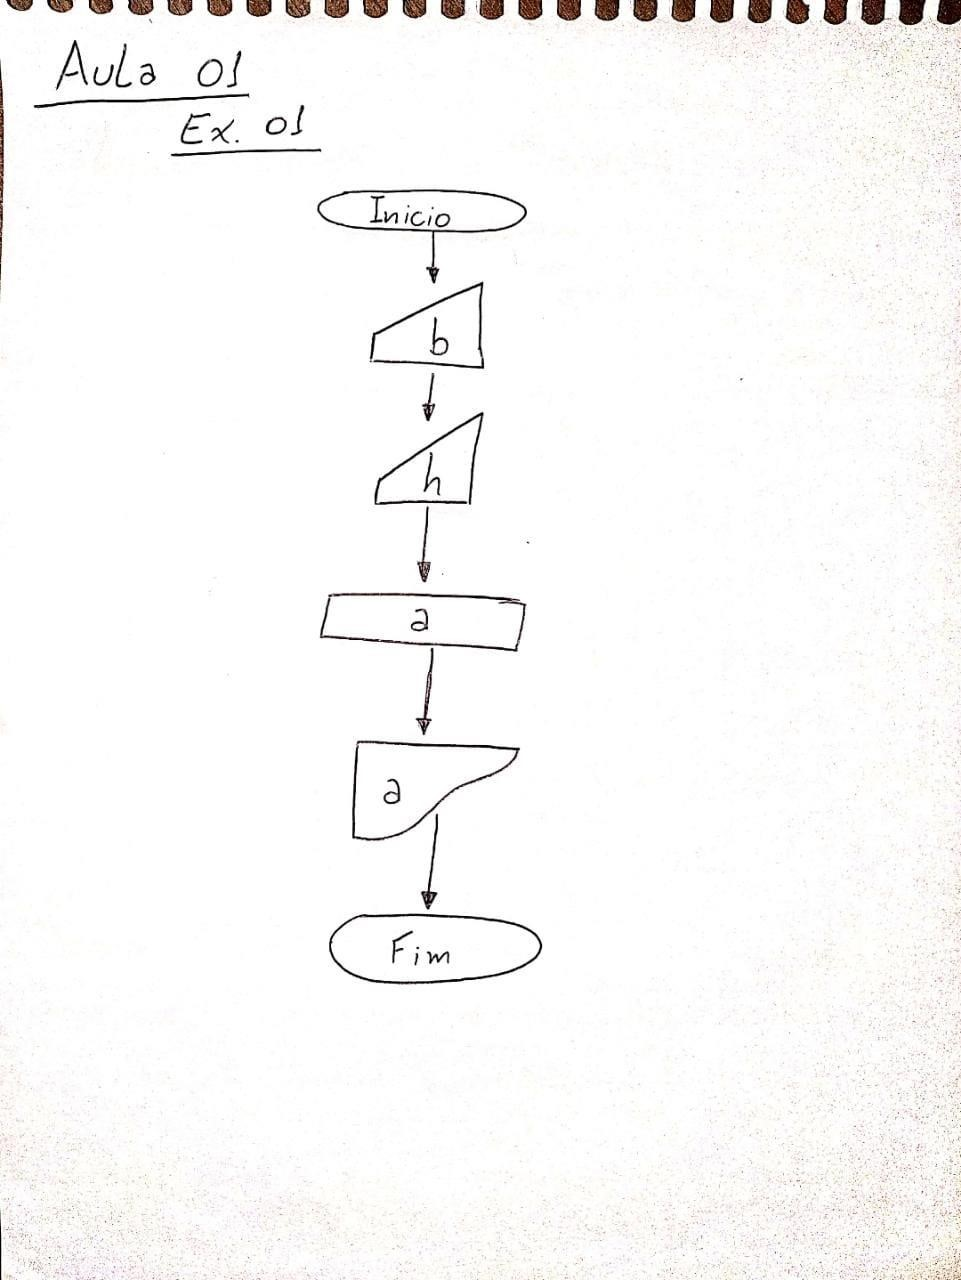 Aula 01
Ex. 01
Inicio
b
h
a
a
Fim